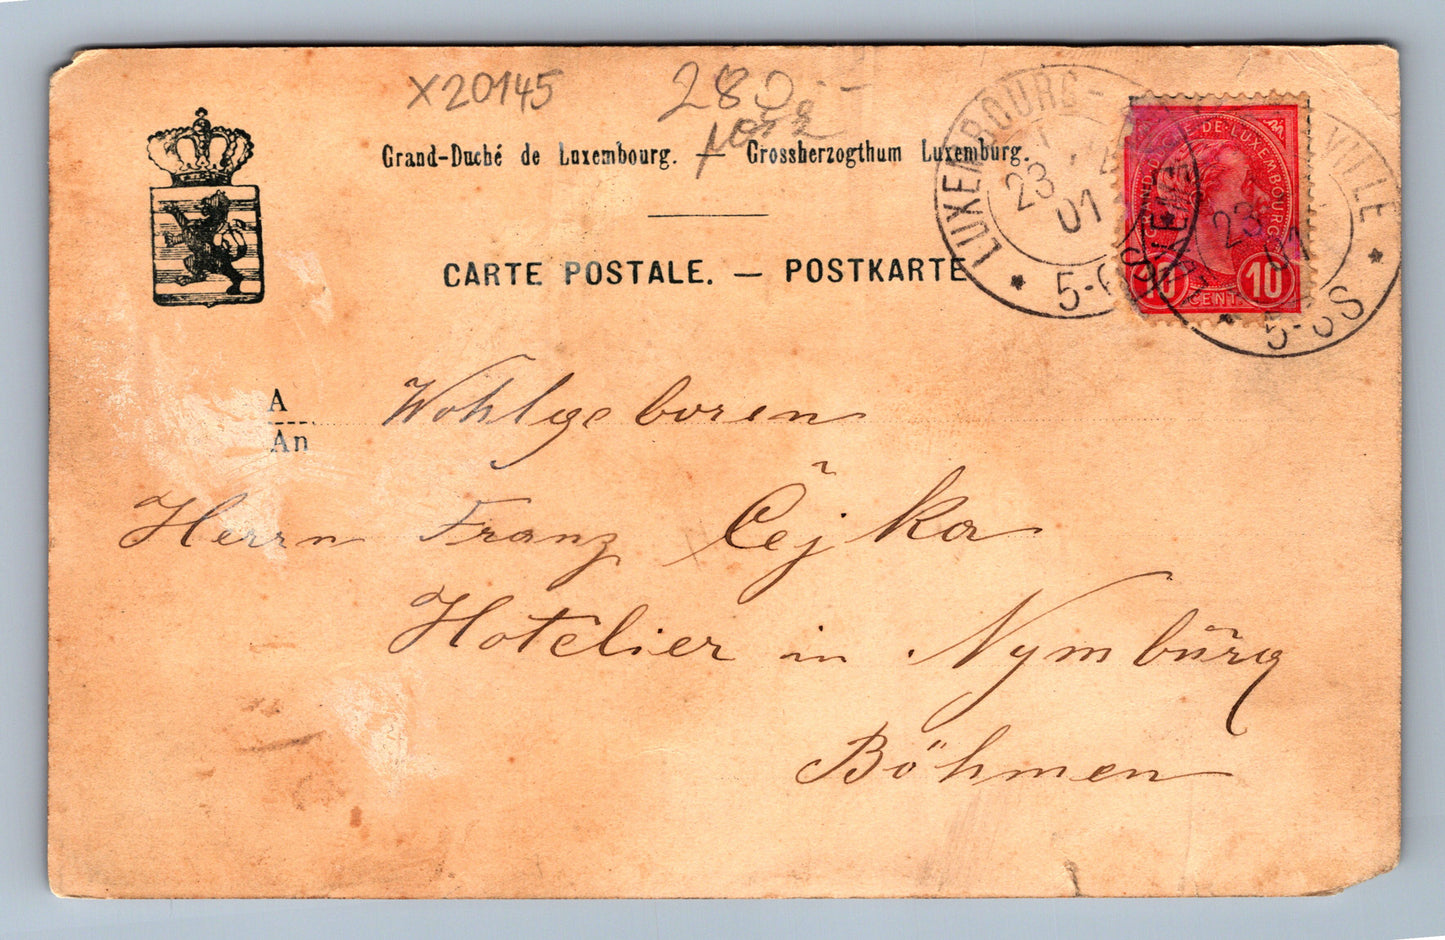 X20145
280.-
Grand-Duché de Luxembourg. — Grossherzogthum Luxemburg.
CARTE POSTALE. — POSTKARTE
LUXEMBOURG-VILLE
23
01
5-6S
GRAND DUCHÉ DE LUXEMBOURG
10 CENT. 10
23
01
5-6S
A
An
Wohlgeboren
Herrn Franz Čejka
Hotelier in Nymbŭrg
Böhmen